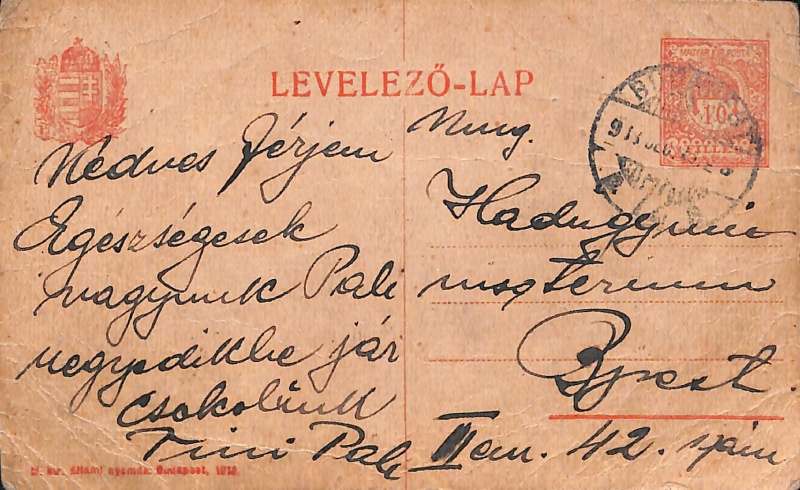 LEVELEZŐ-LAP
MAGYAR KIR. POSTA
10
Kedves Férjem
Egészségesek
vagyunk Pali
negyedikbe jár
Csokolunk
Tini Pali
Hadügymi
niszterium
Bpest.
II em. 42. szám
M. kir. állami nyomda. Budapest, 1918.